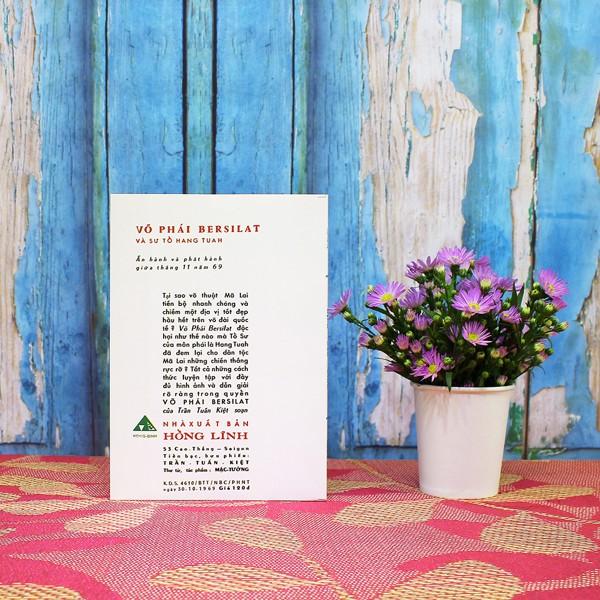 VÕ PHÁI BERSILAT
VÀ SƯ TỔ HANG TUAH
Ấn hành và phát hành
giữa tháng 11 năm 69
Tại sao võ thuật Mã Lai
tiến bộ nhanh chóng và
chiếm một địa vị tốt đẹp
hầu hết trên võ đài quốc
tế ? Võ Phái Bersilat độc
hại như thế nào mà Tổ Sư
của môn phái là Hang Tuah
đã đem lại cho dân tộc
Mã Lai những chiến thắng
rực rỡ ? Tất cả những cách
thức luyện tập với đầy
đủ hình ảnh và dẫn giải
rõ ràng trong quyển
VÕ PHÁI BERSILAT
của Trần Tuấn Kiệt soạn
NHÀ XUẤT BẢN
HỒNG LĨNH
53 Cao-Thắng – Saigon
Tiền bạc, bưu phiếu:
TRẦN - TUẤN - KIỆT
Thư từ, tác phẩm : MẶC-TƯỞNG
K.D.S. 4610/BTT/NBC/PHNT
ngày 30-10-1969 Giá 120đ